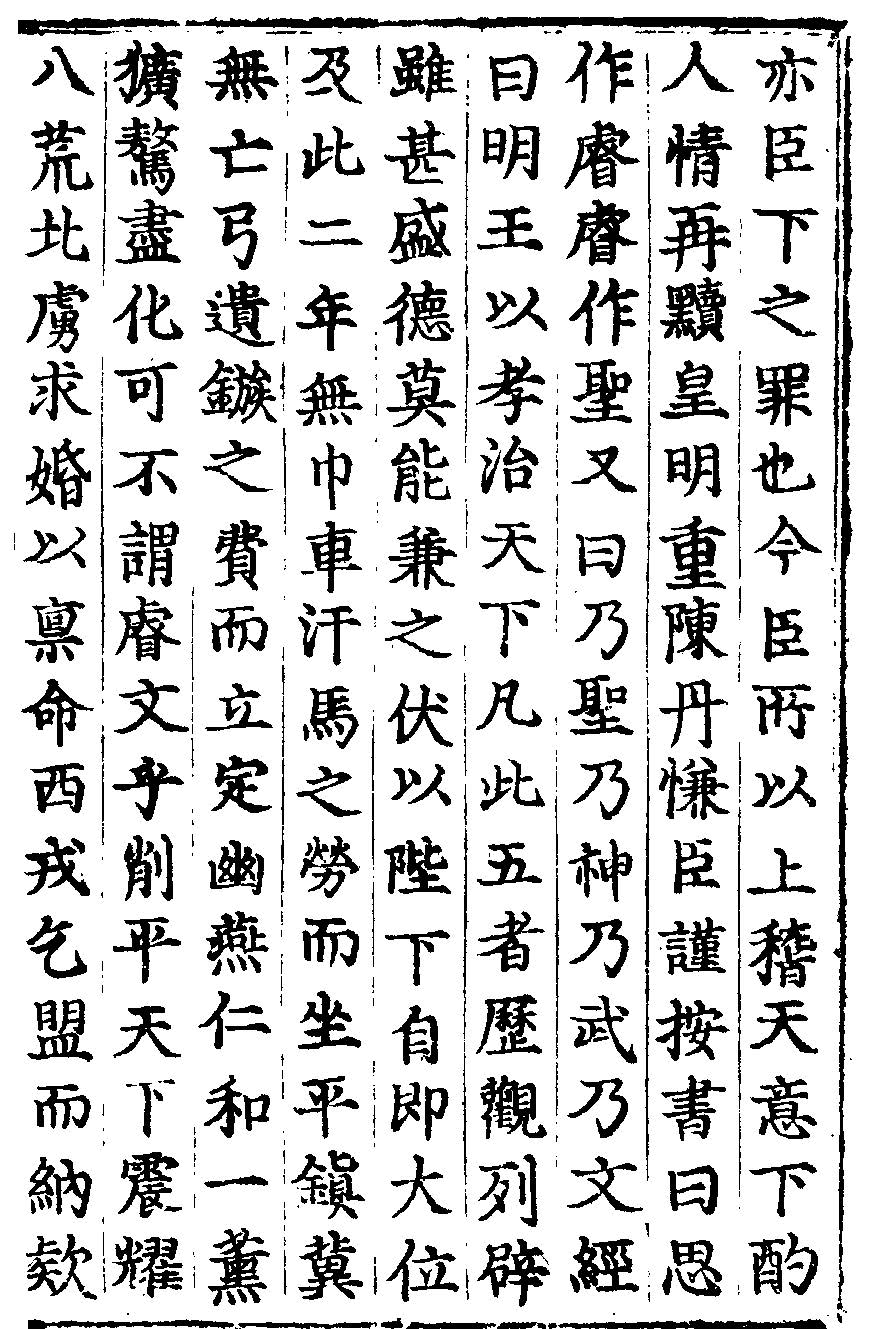 亦臣下之罪也今臣所以上稽天意下酌
人情再黷皇明重陳丹慊臣謹按書曰思
作睿睿作聖又曰乃聖乃神乃武乃文經
曰明王以孝治天下凡此五者歷觀列辟
雖甚盛德莫能兼之伏以陛下自即大位
及此二年無巾車汗馬之勞而坐平鎮冀
無亡弓遺鏃之費而立定幽燕仁和一薰
獷驁盡化可不謂睿文乎削平天下震耀
八荒北虜求婚以禀命西戎乞盟而納欵